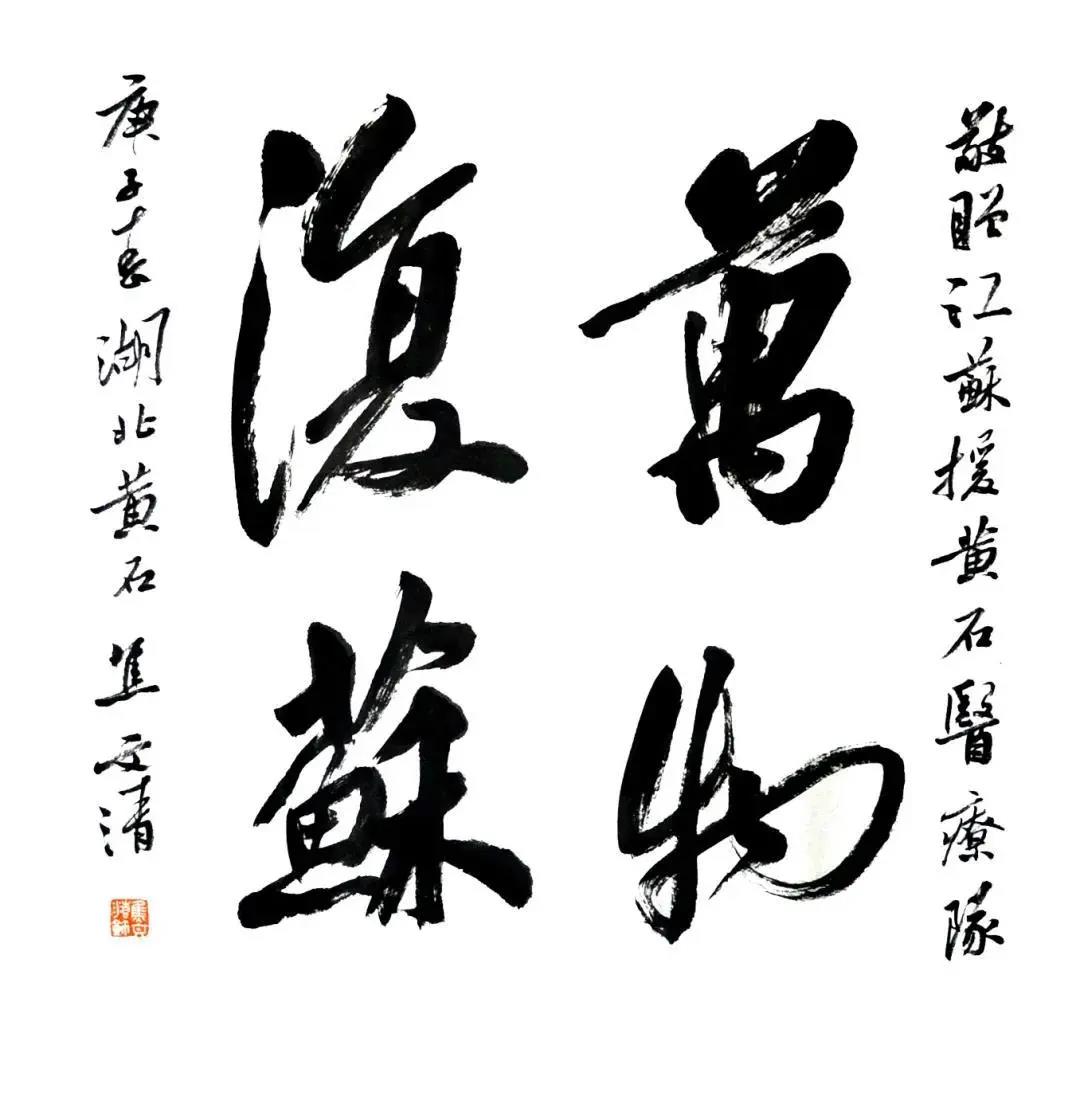 敬贈江蘇援黄石醫療隊
萬物
復蘇
庚子春湖北黄石焦清